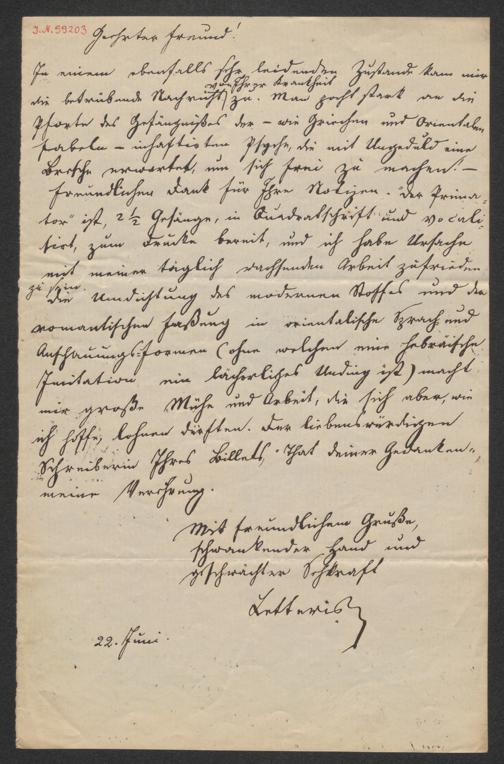 J.N. 59203
Geehrter Freund!
In einem ebenfalls sehr leidenden Zustande kam mir
von Ihrer Krankheit
die betrübende Nachricht zu. Man pocht stark an die
Pforte des Gefängnißes der – wie Griechen und Orientalen
fabeln – inhaftirten Psyche, die mit Ungeduld eine
Bresche erwartet, um sich frei zu machen! –
Freundlichen Dank für Ihre Notizen. "Der Prima-
tor" ist, 2 1/2 Gesänge, in Quadratschrift und vocali-
sirt, zum Drucke bereit, und ich habe Ursache
mit meiner täglich wachsenden Arbeit zufrieden
zu sein.
Die Umdichtung des modernen Stoffes und der
romantischen Faßung in orientalische Sprach und
Anschauungs-Formen (ohne welchen eine hebräische
Imitation ein lächerliches Unding ist) macht
mir große Mühe und Arbeit, die sich aber, wie
ich hoffe, lohnen dürften. Der liebenswürdigen
Schreiberin Ihres Billets, "That deiner Gedanken",
meine Verehrung.
Mit freundlichem Gruße,
schwankender Hand und
geschwächter Sehkraft
Letteris
22. Juni.